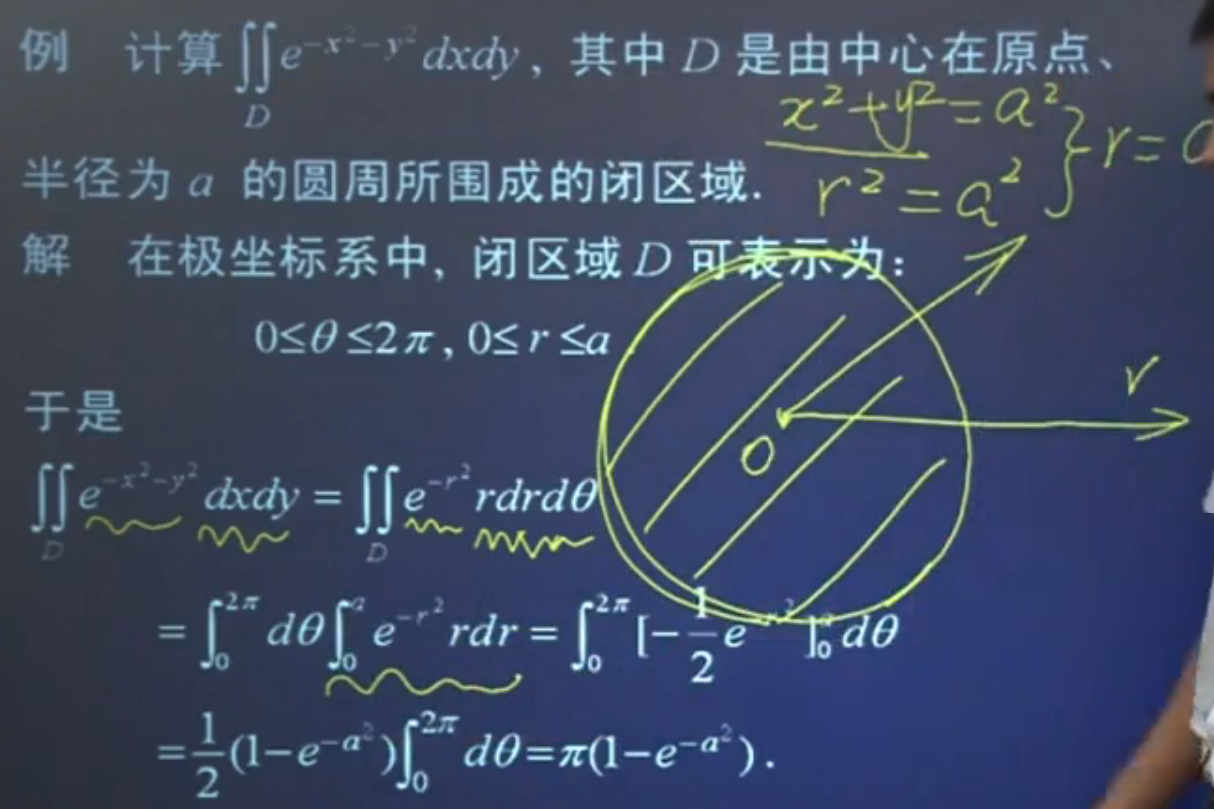 例 计算∬_D e^{-x²-y²}dxdy, 其中 D 是由中心在原点、
x²+y²=a²
r²=a² } r=
半径为 a 的圆周所围成的闭区域.
解 在极坐标系中, 闭区域 D 可表示为:
0≤θ≤2π, 0≤r≤a
r
O
于是
∬_D e^{-x²-y²}dxdy = ∬_D e^{-r²}rdrdθ
=∫_0^{2π}dθ∫_0^a e^{-r²}rdr=∫_0^{2π}[-\frac{1}{2}e^{-r²}]_0^a dθ
=\frac{1}{2}(1-e^{-a²})∫_0^{2π}dθ=π(1-e^{-a²}).